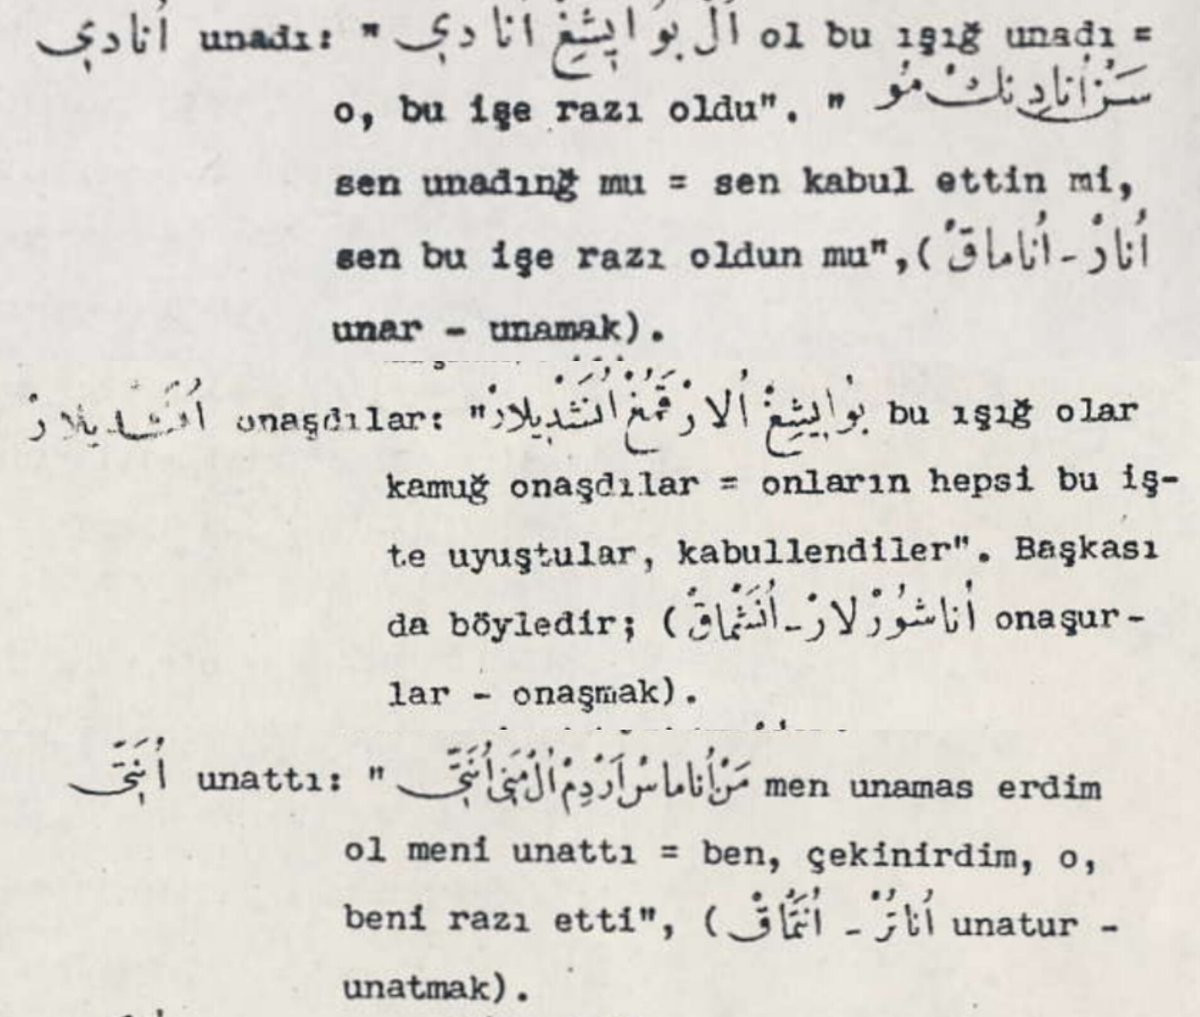 اُنادي unadı: " اُلْ بو ايشِغْ اُنادي ol bu ışığ unadı =
o, bu işe razı oldu". " سَنْ اُنادِنكْ مُو
sen unadınğ mu = sen kabul ettin mi,
sen bu işe razı oldun mu",( اُنارْ - اُناماقْ
unar - unamak).
اُنَشْديلارْ onaşdılar: "بُو ايشِغْ اُلارْ قَمُغْ اُنَشْديلارْ bu ışığ olar
kamuğ onaşdılar = onların hepsi bu iş-
te uyuştular, kabullendiler". Başkası
da böyledir; ( اُناشُورْلارْ - اُنَشْماقْ onaşur-
lar - onaşmak).
اُنَتّي unattı: " مَنْ اُناماسْ اَرْدِمْ اُلْ مَني اُنَتّي men unamas erdim
ol meni unattı = ben, çekinirdim, o,
beni razı etti", ( اُناتُرْ - اُنَتْماقْ unatur -
unatmak).